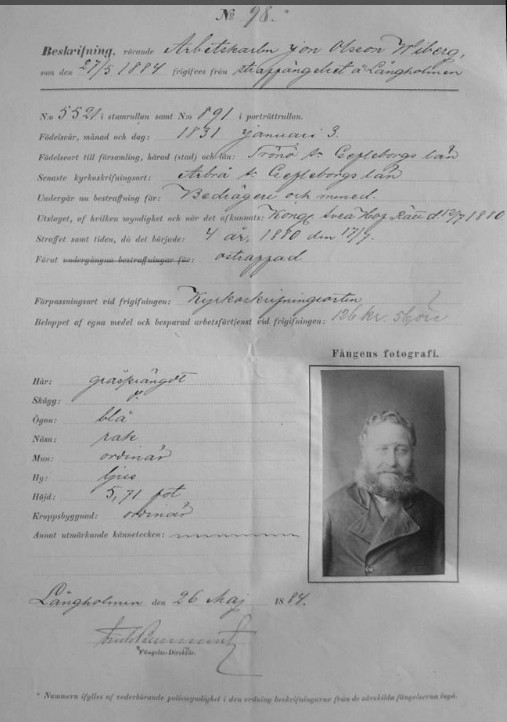 No 98.*
Beskrifning, rörande Arbetskarlen Jon Olsson Wiberg,
som den 27/5 1884 frigifves från straffängelset å Långholmen
N:o 5521 i stamrullan samt N:o 891 i porträttrullan.
Födelseår, månad och dag: 1831 januari 3.
Födelseort till församling, härad (stad) och län: Trönö s:n Gefleborgs län
Senaste kyrkoskrifningsort: Arbrå s:n Gefleborgs län
Undergår nu bestraffning för: Bedrägeri och mened.
Utslaget, af hvilken myndighet och när det afkunnats: Kongl. Svea Hof Rätt d 12/7 1880
Straffet samt tiden, då det började: 4 år, 1880 den 17/7.
Förut undergångna bestraffningar för: ostraffad
Förpassningsort vid frigifningen: Kyrkoskrifningsorten
Beloppet af egna medel och besparad arbetsförtjenst vid frigifningen: 126 kr. 56 öre
Fångens fotografi.
Hår: gråsprängdt
Skägg: d:o
Ögon: blå
Näsa: rak
Mun: ordinär
Hy: ljus
Höjd: 5,71 fot
Kroppsbyggnad: ordinär
Annat utmärkande kännetecken:
Långholmen den 26 Maj 1884.
Fängelse-Direktör.
* Numren ifylles af vederbörande polismyndighet i den ordning beskrifningarne från de särskilda fängelserna ingå.